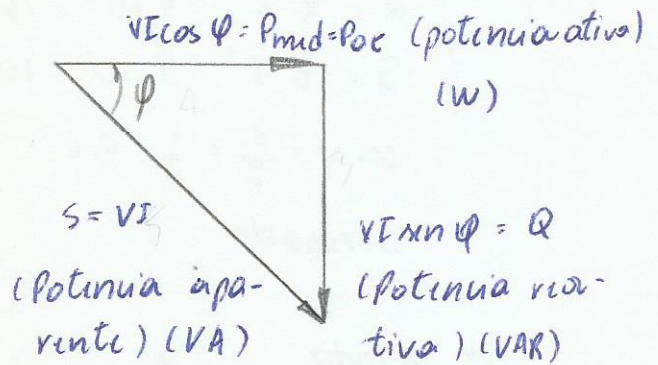 VI cos φ = Pmed = Pac (potencia ativa)
(W)
φ
S = VI
(Potencia apa-
rente) (VA)
VI sen φ = Q
(Potencia rea-
tiva) (VAR)